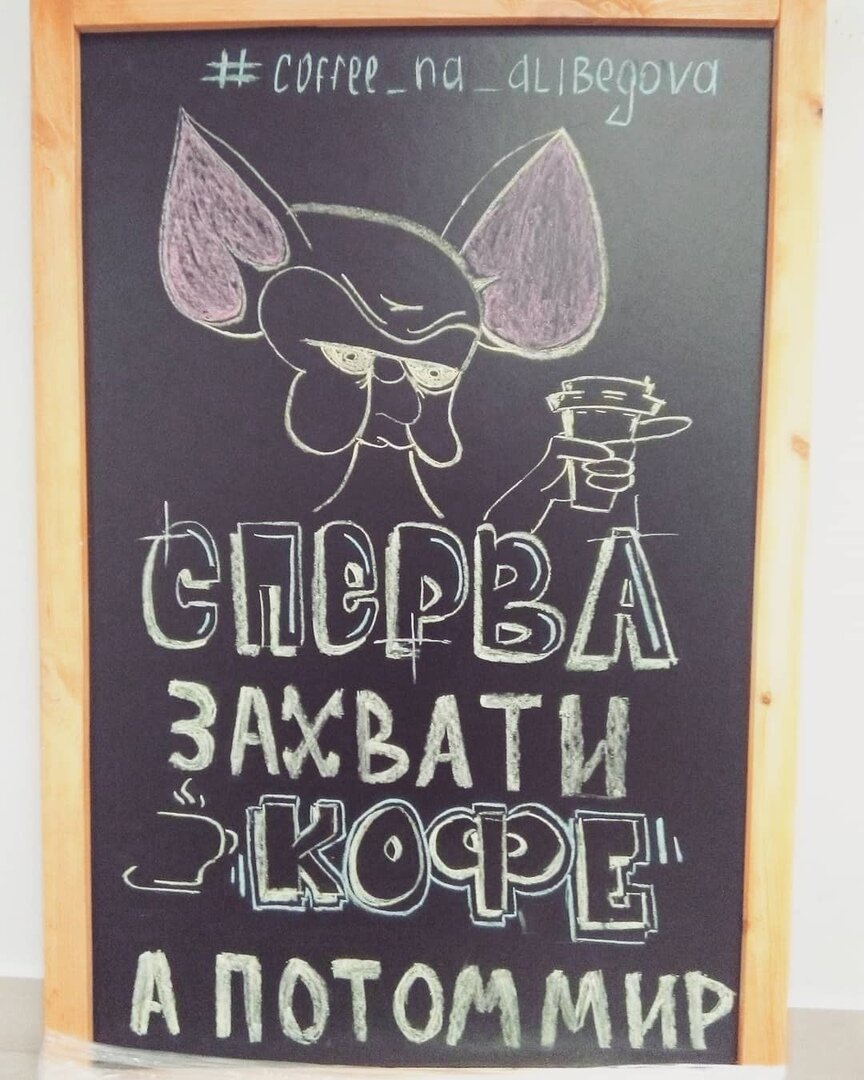 #coffee_na_alibegova
СПЕРВА
ЗАХВАТИ
КОФЕ
А ПОТОМ МИР